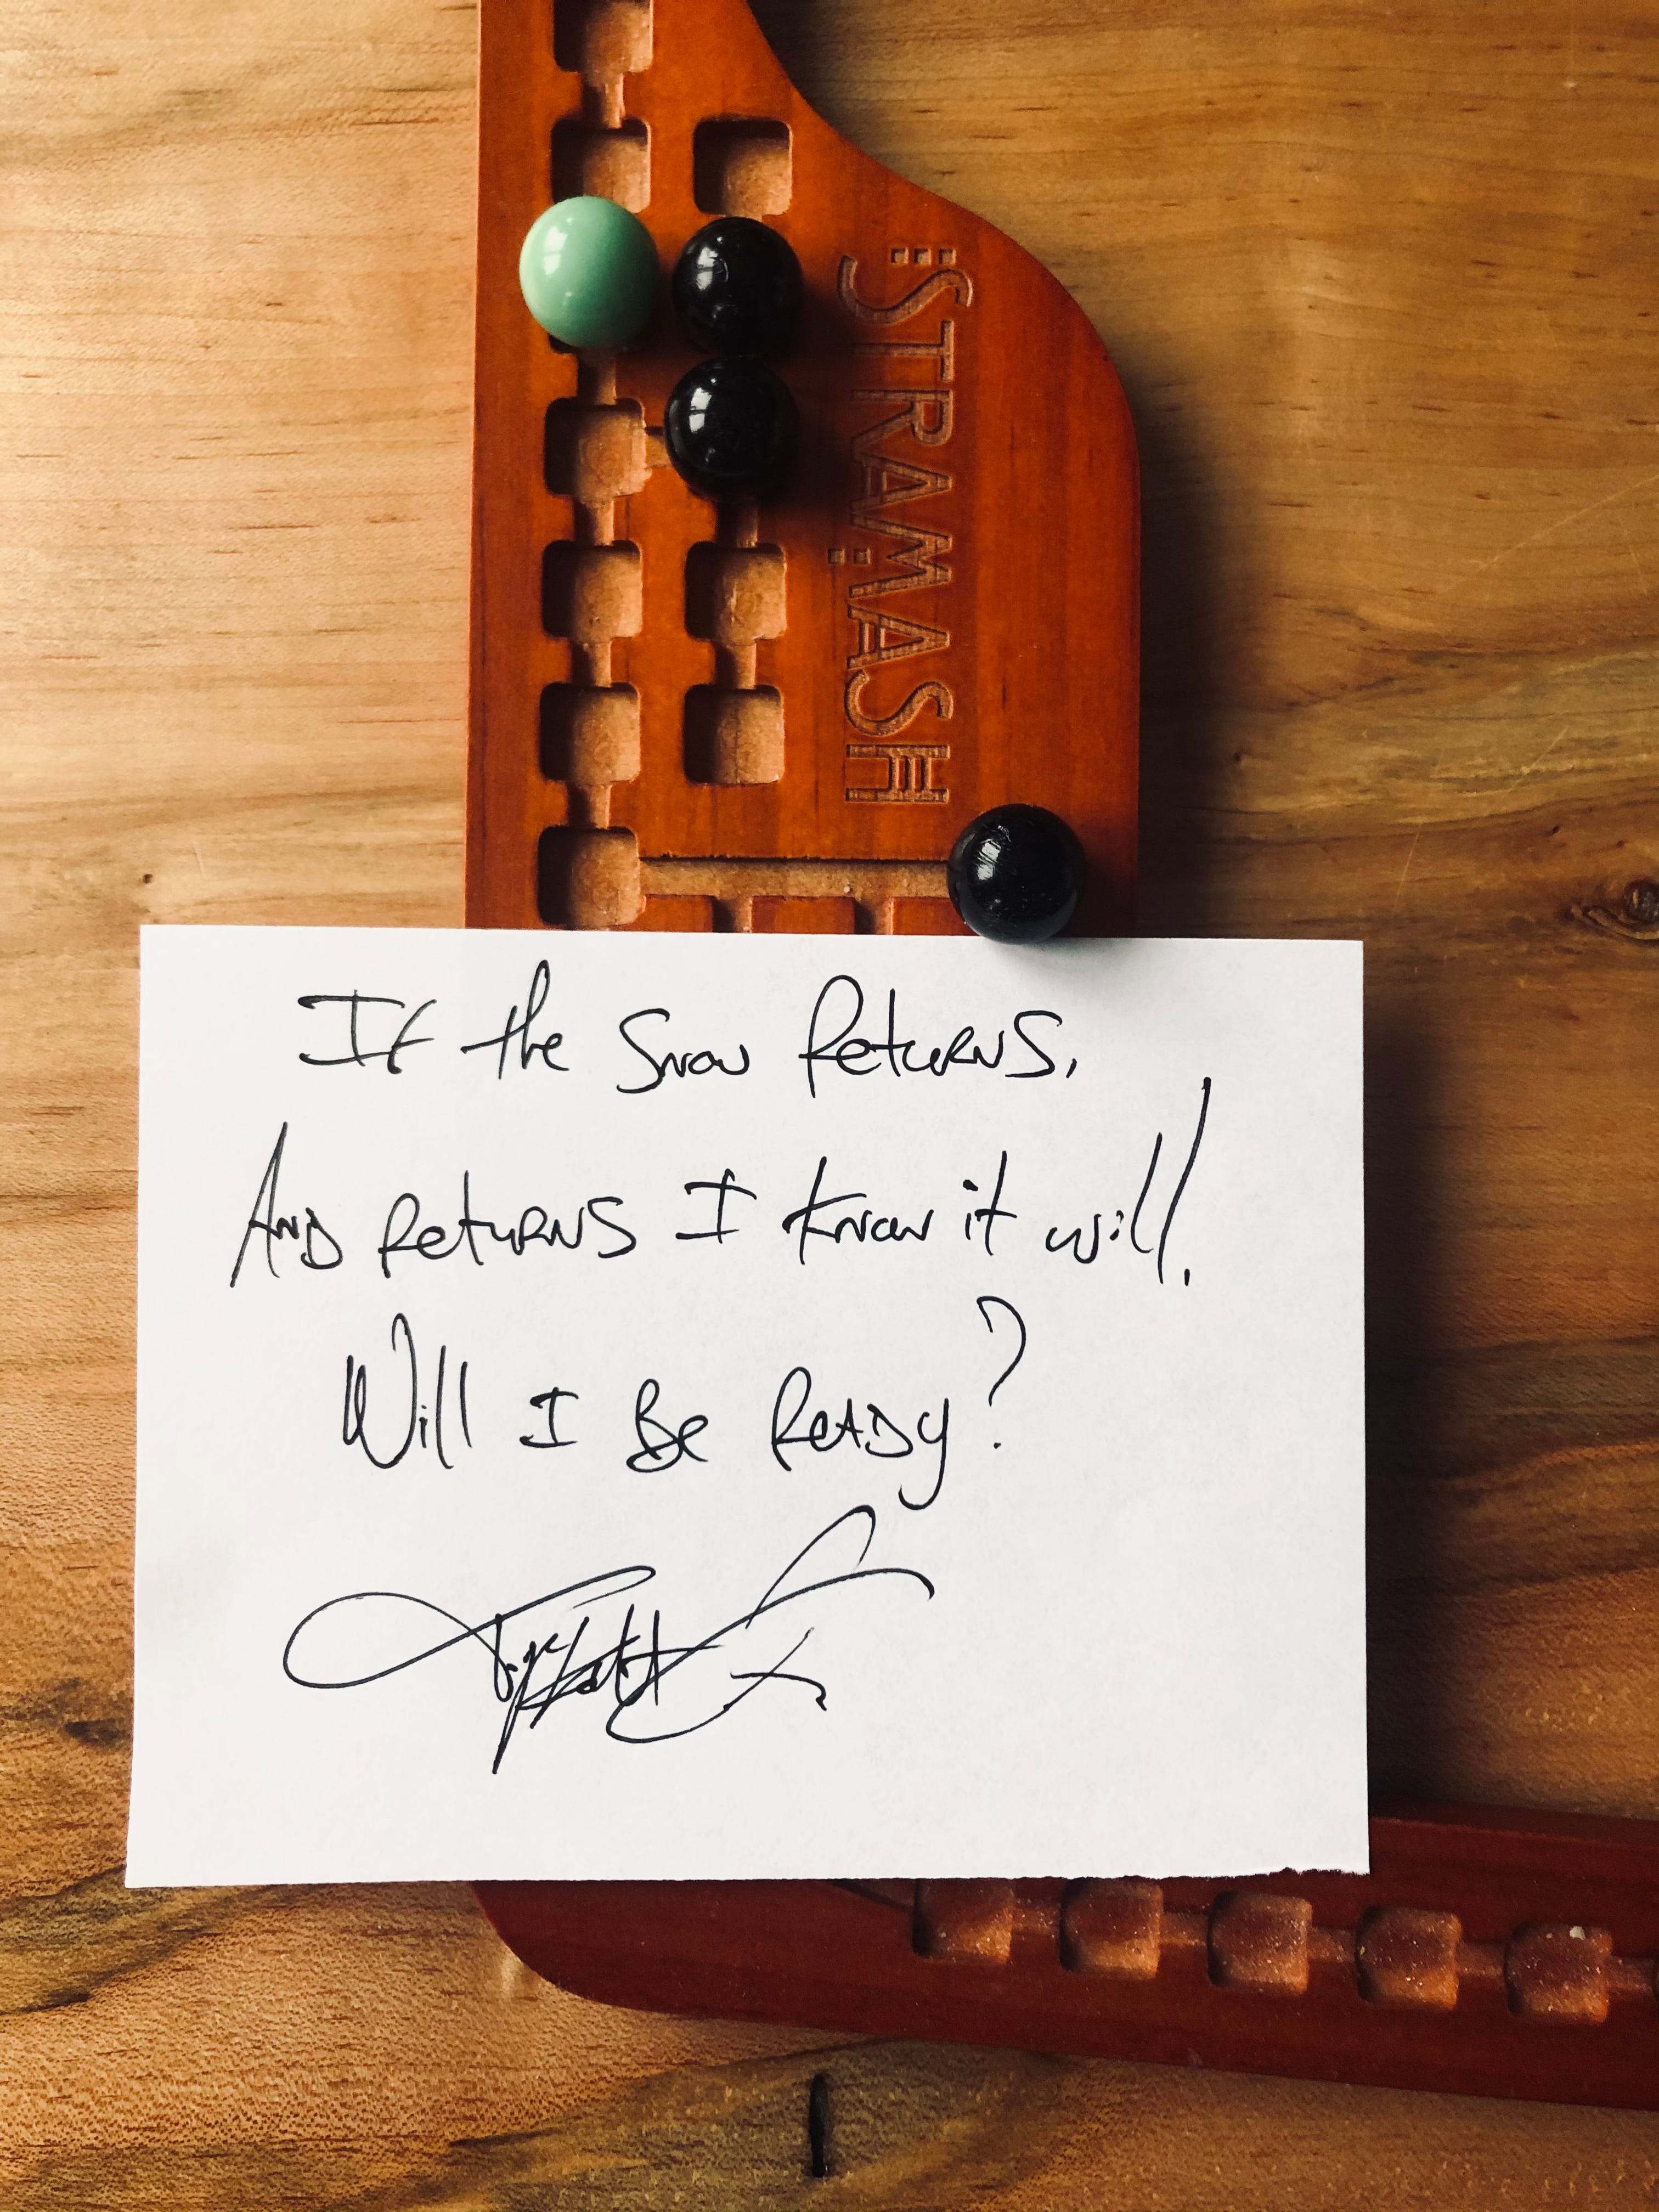 STRAMASH
If the Snow Returns,
And Returns I know it will!
Will I Be Ready?